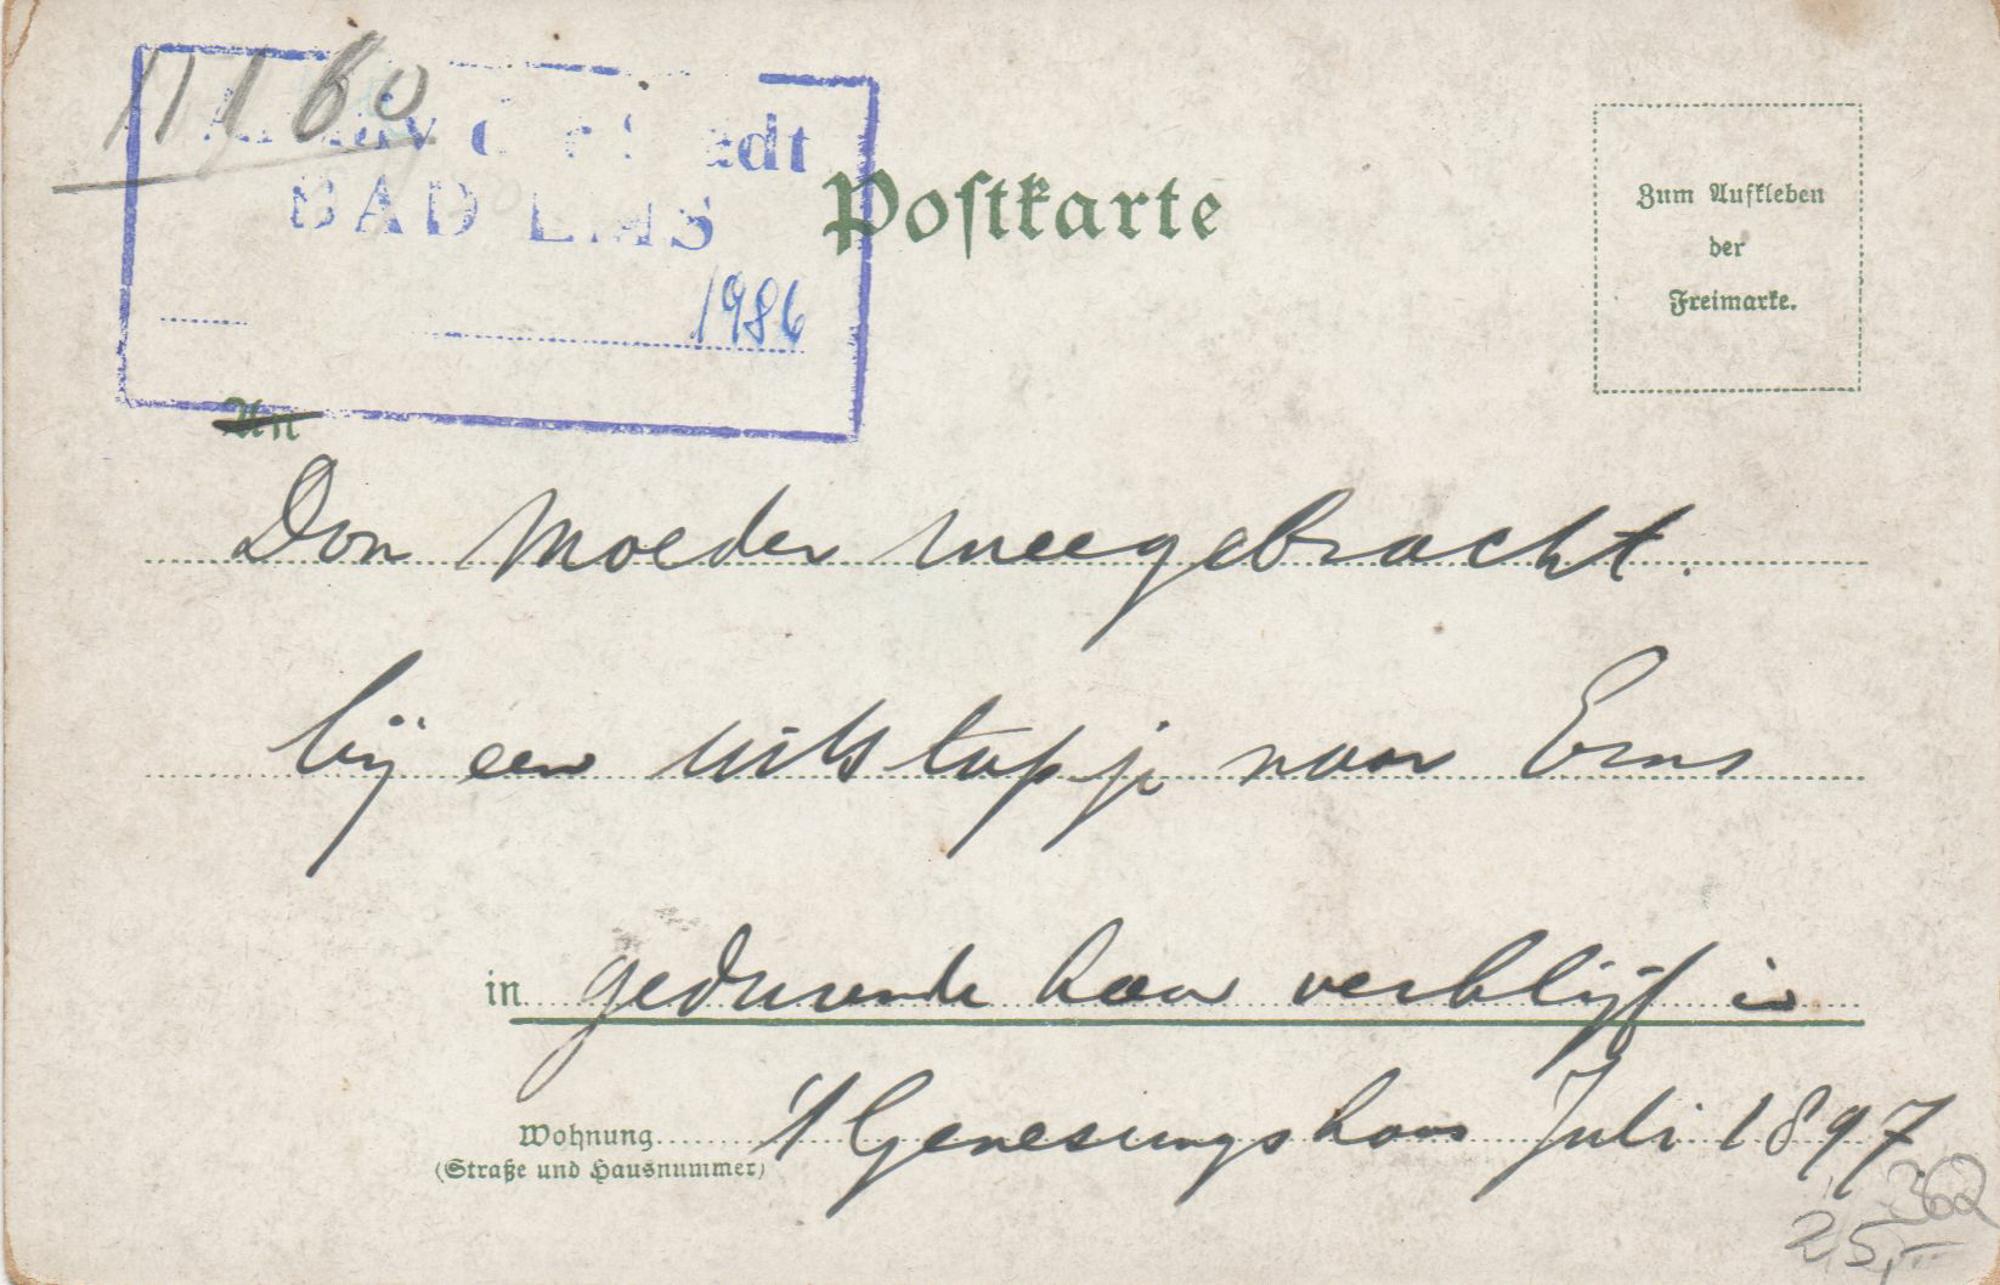 1160
Archiv der Stadt
BAD EMS
1986
Postkarte
Zum Aufkleben
der
Freimarke.
An
Don Moeder meegebracht.
bij een uitstapje naar Ems
in gedurende haar verblijf in
Wohnung 't Genesungshaus Juli 1897
(Straße und Hausnummer)
25,-